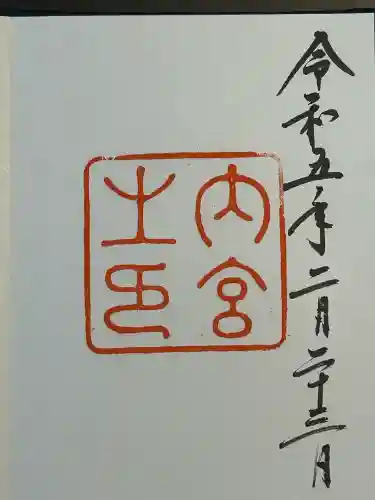 令和五年二月二十三日
内宮
之印